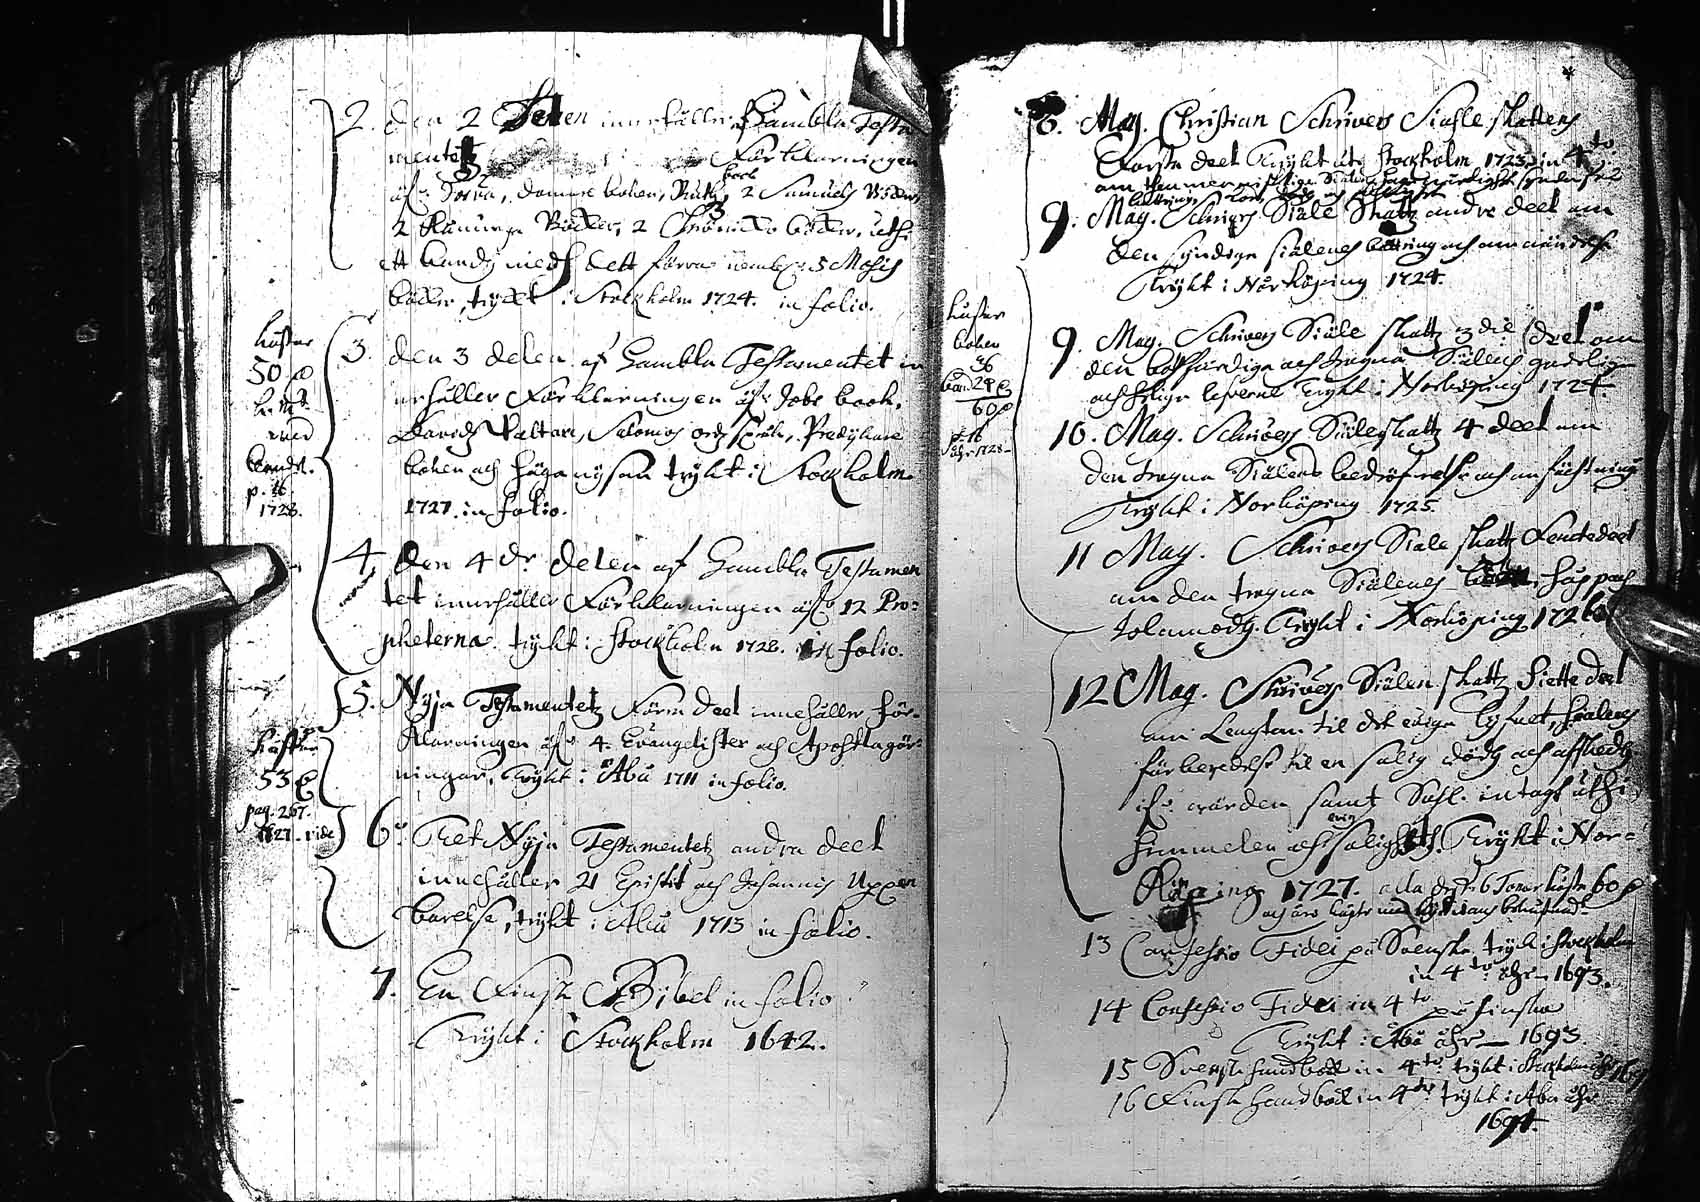 2. den 2 Delen innehåller Gambla Testa
mentetz Förklarningen
öfr Josua, Domare boken, Ruths book 2 Samuels Böcker,
2 Konunga Böcker, 2 Chrönicko böcker, uthi
ett band med dett förra nembl. 5 Mosis
böcker, tryckt i Stockholm 1724. in folio.
kostar
50
med
bandt.
p. 16
1728.
3. den 3 delen af Gambla Testamentet in
nehåller Förklarningen öfr Jobs book,
Davids Psaltare, Salomos ordspråk, Predikare
boken och höga wysan trykt i Stockholm
1727. in folio.
4. den 4de delen af Gambla Testamen
tet innehåller Förklarningen öfr 12 Pro-
pheterna. trykt i Stockholm 1728. in folio.
5. Nyja Testamentetz Förra deel innehåller för-
klarningen öfr 4. Evangelister och Apostlagär-
ningar, Trykt i Åbo 1711 in folio.
kåstar
53
pag. 267.
1727. vide
6. Thet Nyja Testamentetz andra deel
innehåller 21 Epistlr och Johannis Uppen
barelse, trykt i Åbo 1713 in folio.
7. En Finsk Bibel in folio
Trykt i Stockholm 1642.
8. Mag. Christian Schrivers Siäle skattens
Första deel Trykt uti Stockholm 1723 in 4to
9. Mag. Schrivers Siäle Skatz andre deel om
den syndiga siälenes bättring och omwändelse
Trykt i Norköping 1724.
kostar
boken
36
band 24
60
p. 16
åhr 1728
9. Mag. Schrivers Siäle skattz 3die deel om
den botfärdiga och trogna Siälens gudelige
och helige leverne Trykt i Norköping 1724.
10. Mag. Schrivers Siäleskattz 4 deel om
den trogna Siälens bedröfwelse och anfächtning
Trykt i Norköping 1725.
11 Mag. Schrivers Siäle skattz Femte deel
om den trogna Siälenes hopp och
tolamodh. Trykt i Norköping 1726
12 Mag. Schrivers Siälen skattz Siette deel
om Længtan til det ewiga lifwet, siälens
förberedelse til en salig dödh och afskedh
ifr. wärden samt Sahl. intagt uthi
himmelen och ewig salighet. Trykt i Nor-
köping 1727. alla desse 6 Tomer kosta 60
13 Confessio Fidei på Svenska trykt i Stockholm
in 4to åhr 1693.
14 Confessio Fidei in 4to på finska
Trykt i Åbo åhr 1693.
15 Svensk handbok in 4to trykt i Stockholm åhr
16 Finsk handbok in 4to trykt i Åbo åhr
1694.